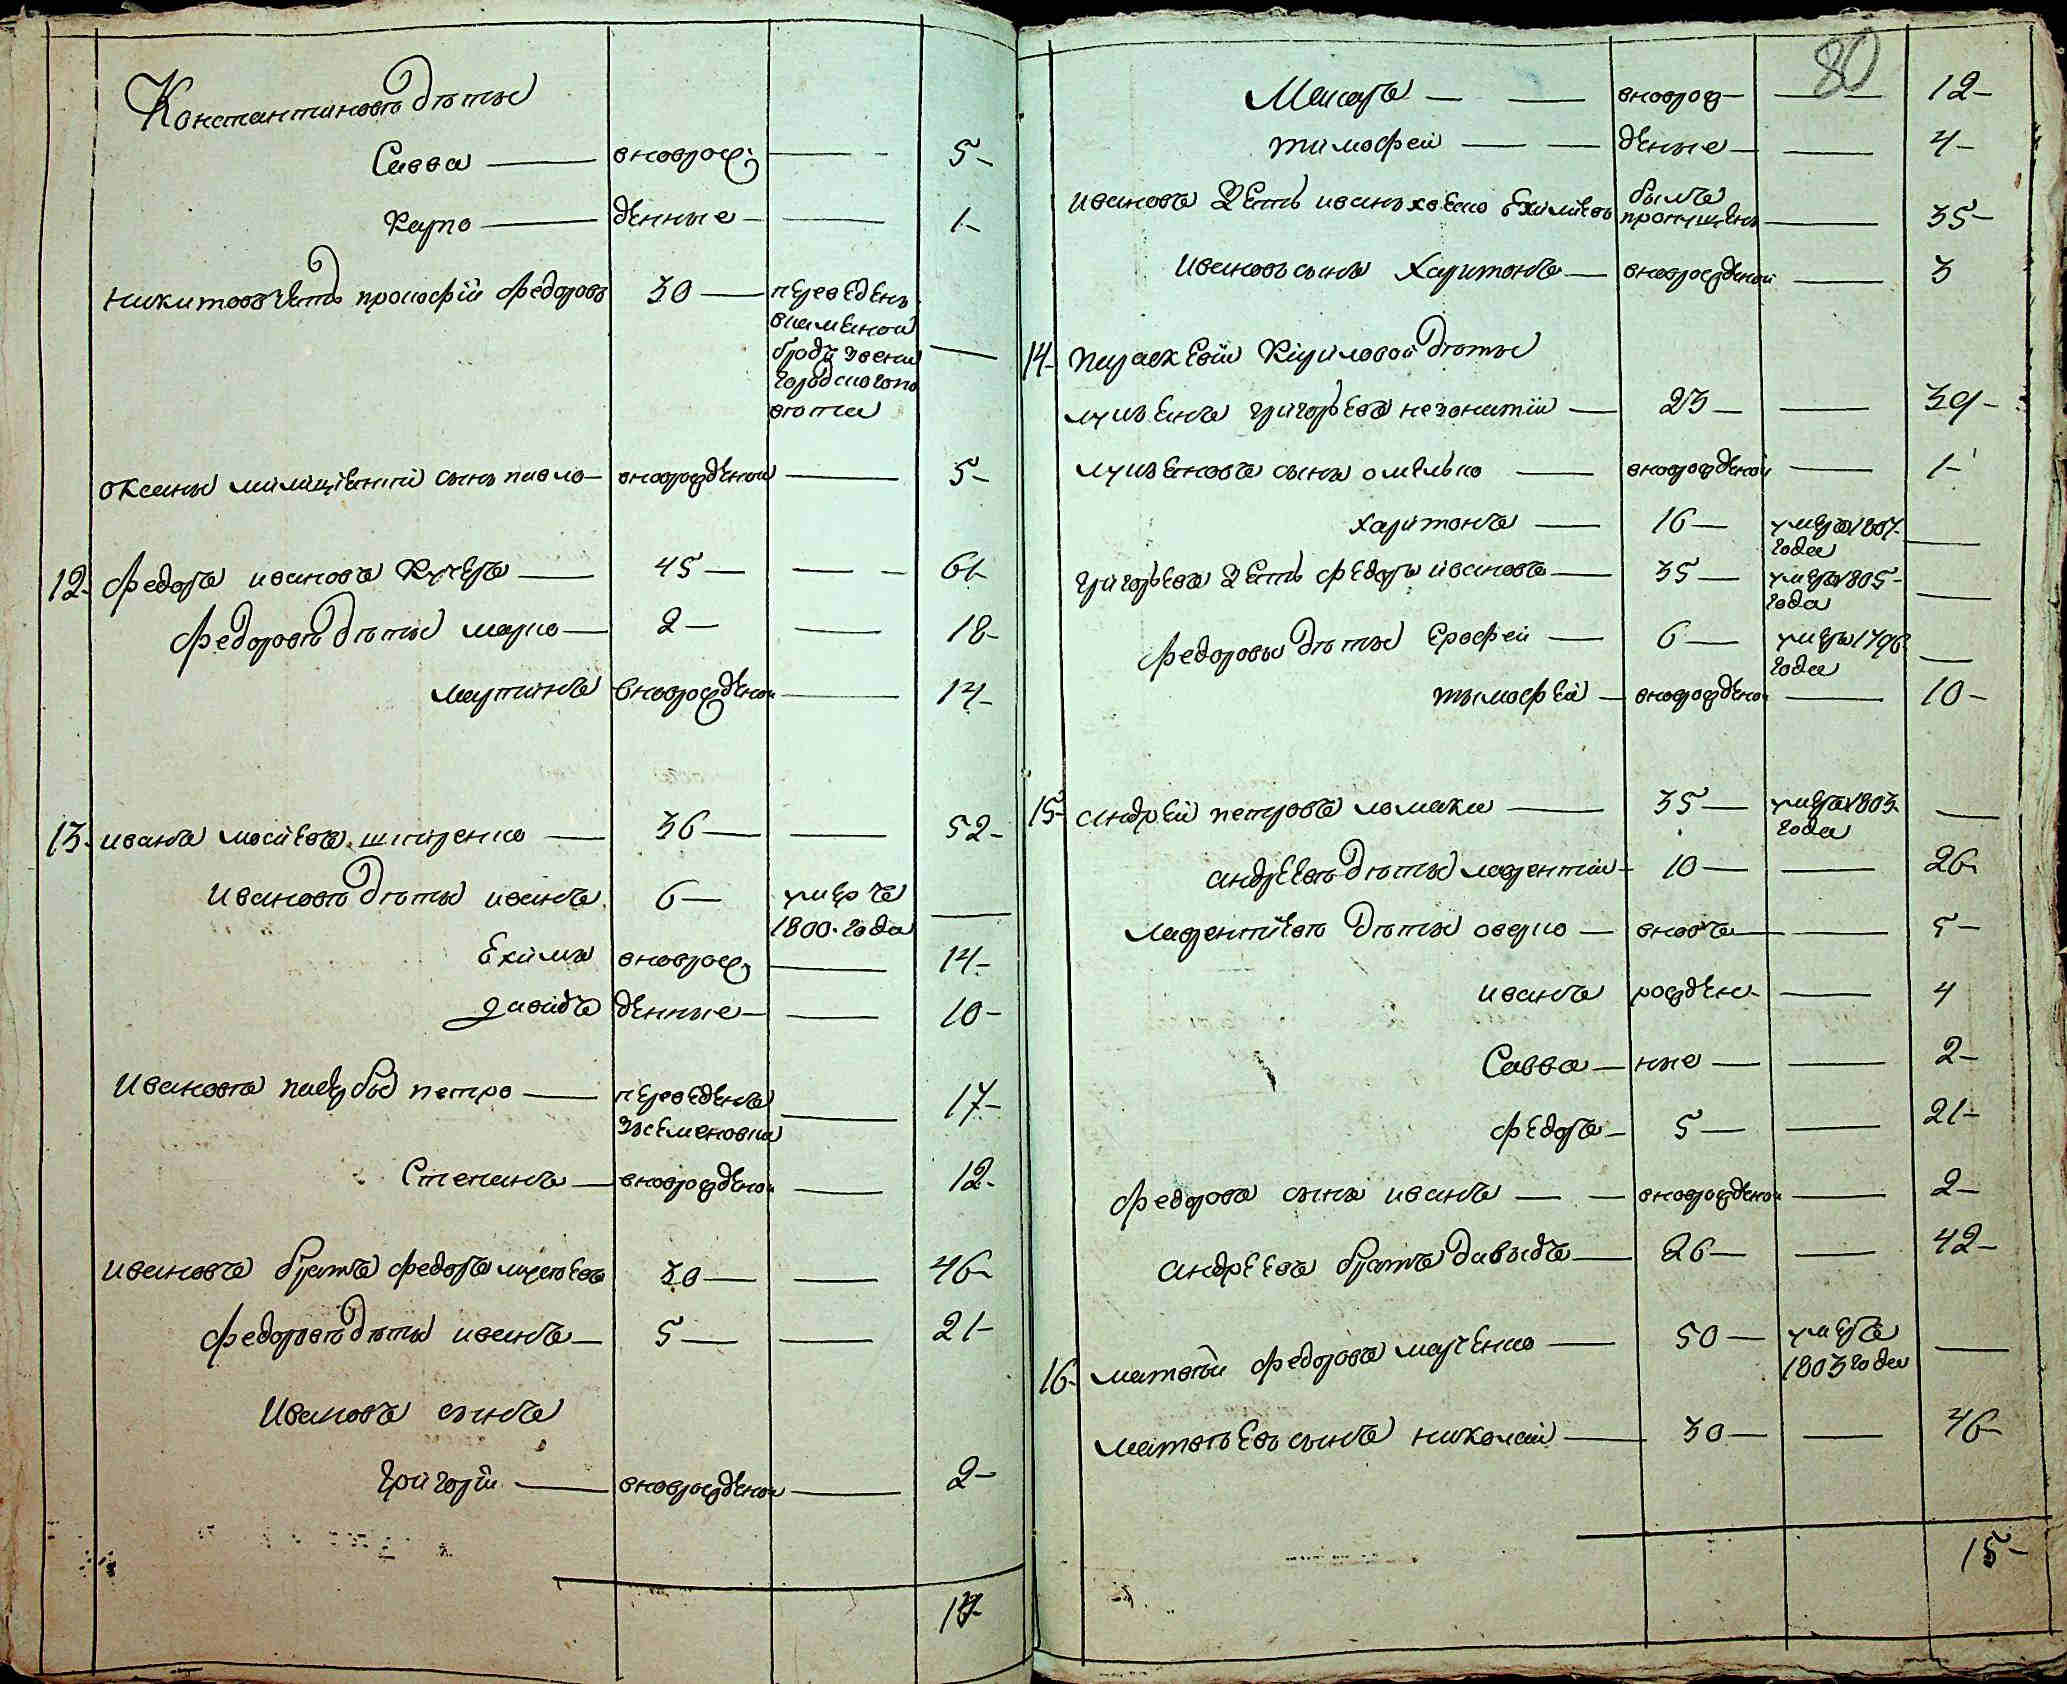 Константиновы дѣты
Савва — вноврож — 5-
Карпо — денные — 1-
Никитовъ зеть прокофій Федоровъ 30 — переведенъ
вкаменой
бродъ звени
городскаго по
вѣта
Оксаны сынъ павло — вноврожденой — 5-
12. Федоръ ивановъ Кучеръ — 45 — 61-
Федоровы дѣты марко — 2 — 18-
мартинъ вноврожденой — 14-
13. иванъ мосіевъ — 36 — 52-
Ивановы дѣты иванъ 6 — умеръ
1800. года —
Ехимъ вноврож — 14-
давидъ денные — 10-
Ивановъ петро — переведенъ — 17-
Степанъ — вноврожденой — 12-
Ивановъ братъ Федоръ 30 — 46-
Федоровы дѣты иванъ — 5 — 21-
Ивановъ сынъ
Григорій — вноврожденой — 2-
17-
80
Макаръ — вноврож — 12-
тимофей — денные — 4-
Ивановъ зеть Ехимiевъ былъ
пропущенъ — 35-
Ивановъ сынъ Харитонъ — вноврожденой — 3
14- параскевіи Кириловой дѣты
лукъянъ григорьевъ — 23 — 39-
лукъяновъ сынъ омелько — вноврожденой — 1-
харитонъ — 16 — умеръ 1807
года —
григорьевъ зеть федоръ ивановъ — 35 — умеръ 1805
года —
Федоровы дѣты Ерофей — 6 — умеръ 1796
года —
тымофей — вноврожденой — 10-
15- андрей петровъ ломака — 35 — умеръ 1803
года —
андреевы дѣты лаврентій — 10 — 26-
лаврентіевы дѣты оверко — вновъ — 5-
иванъ рожден — 4
Савва — ные — 2-
федоръ — 5 — 21-
Федоровъ сынъ иванъ — вноврожденой — 2-
андреевъ братъ давыдъ — 26 — 42-
16- матвѣй федоровъ марченко — 50 — умеръ
1803 года —
матвѣевъ сынъ николай — 30 — 46-
15-